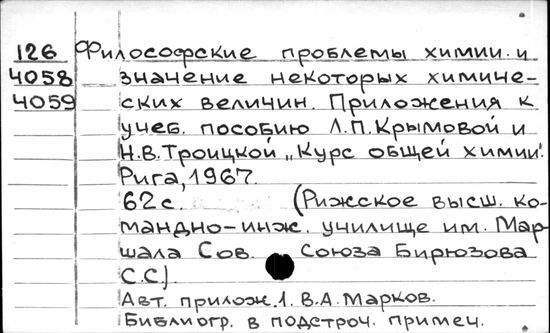 126 Философские проблемы химии и
4058 значение некоторых химиче-
4059 ских величин. Приложения к
учеб. пособию Л.П.Крымовой и
Н.В.Троицкой „Курс общей химии".
Рига, 1967.
62с. (Рижское высш. ко-
мандно-инж. училище им. Мар-
шала Сов. Союза Бирюзова
С.С).
Авт. прилож. 1. В.А.Марков.
Библиогр. в подстроч. примеч.